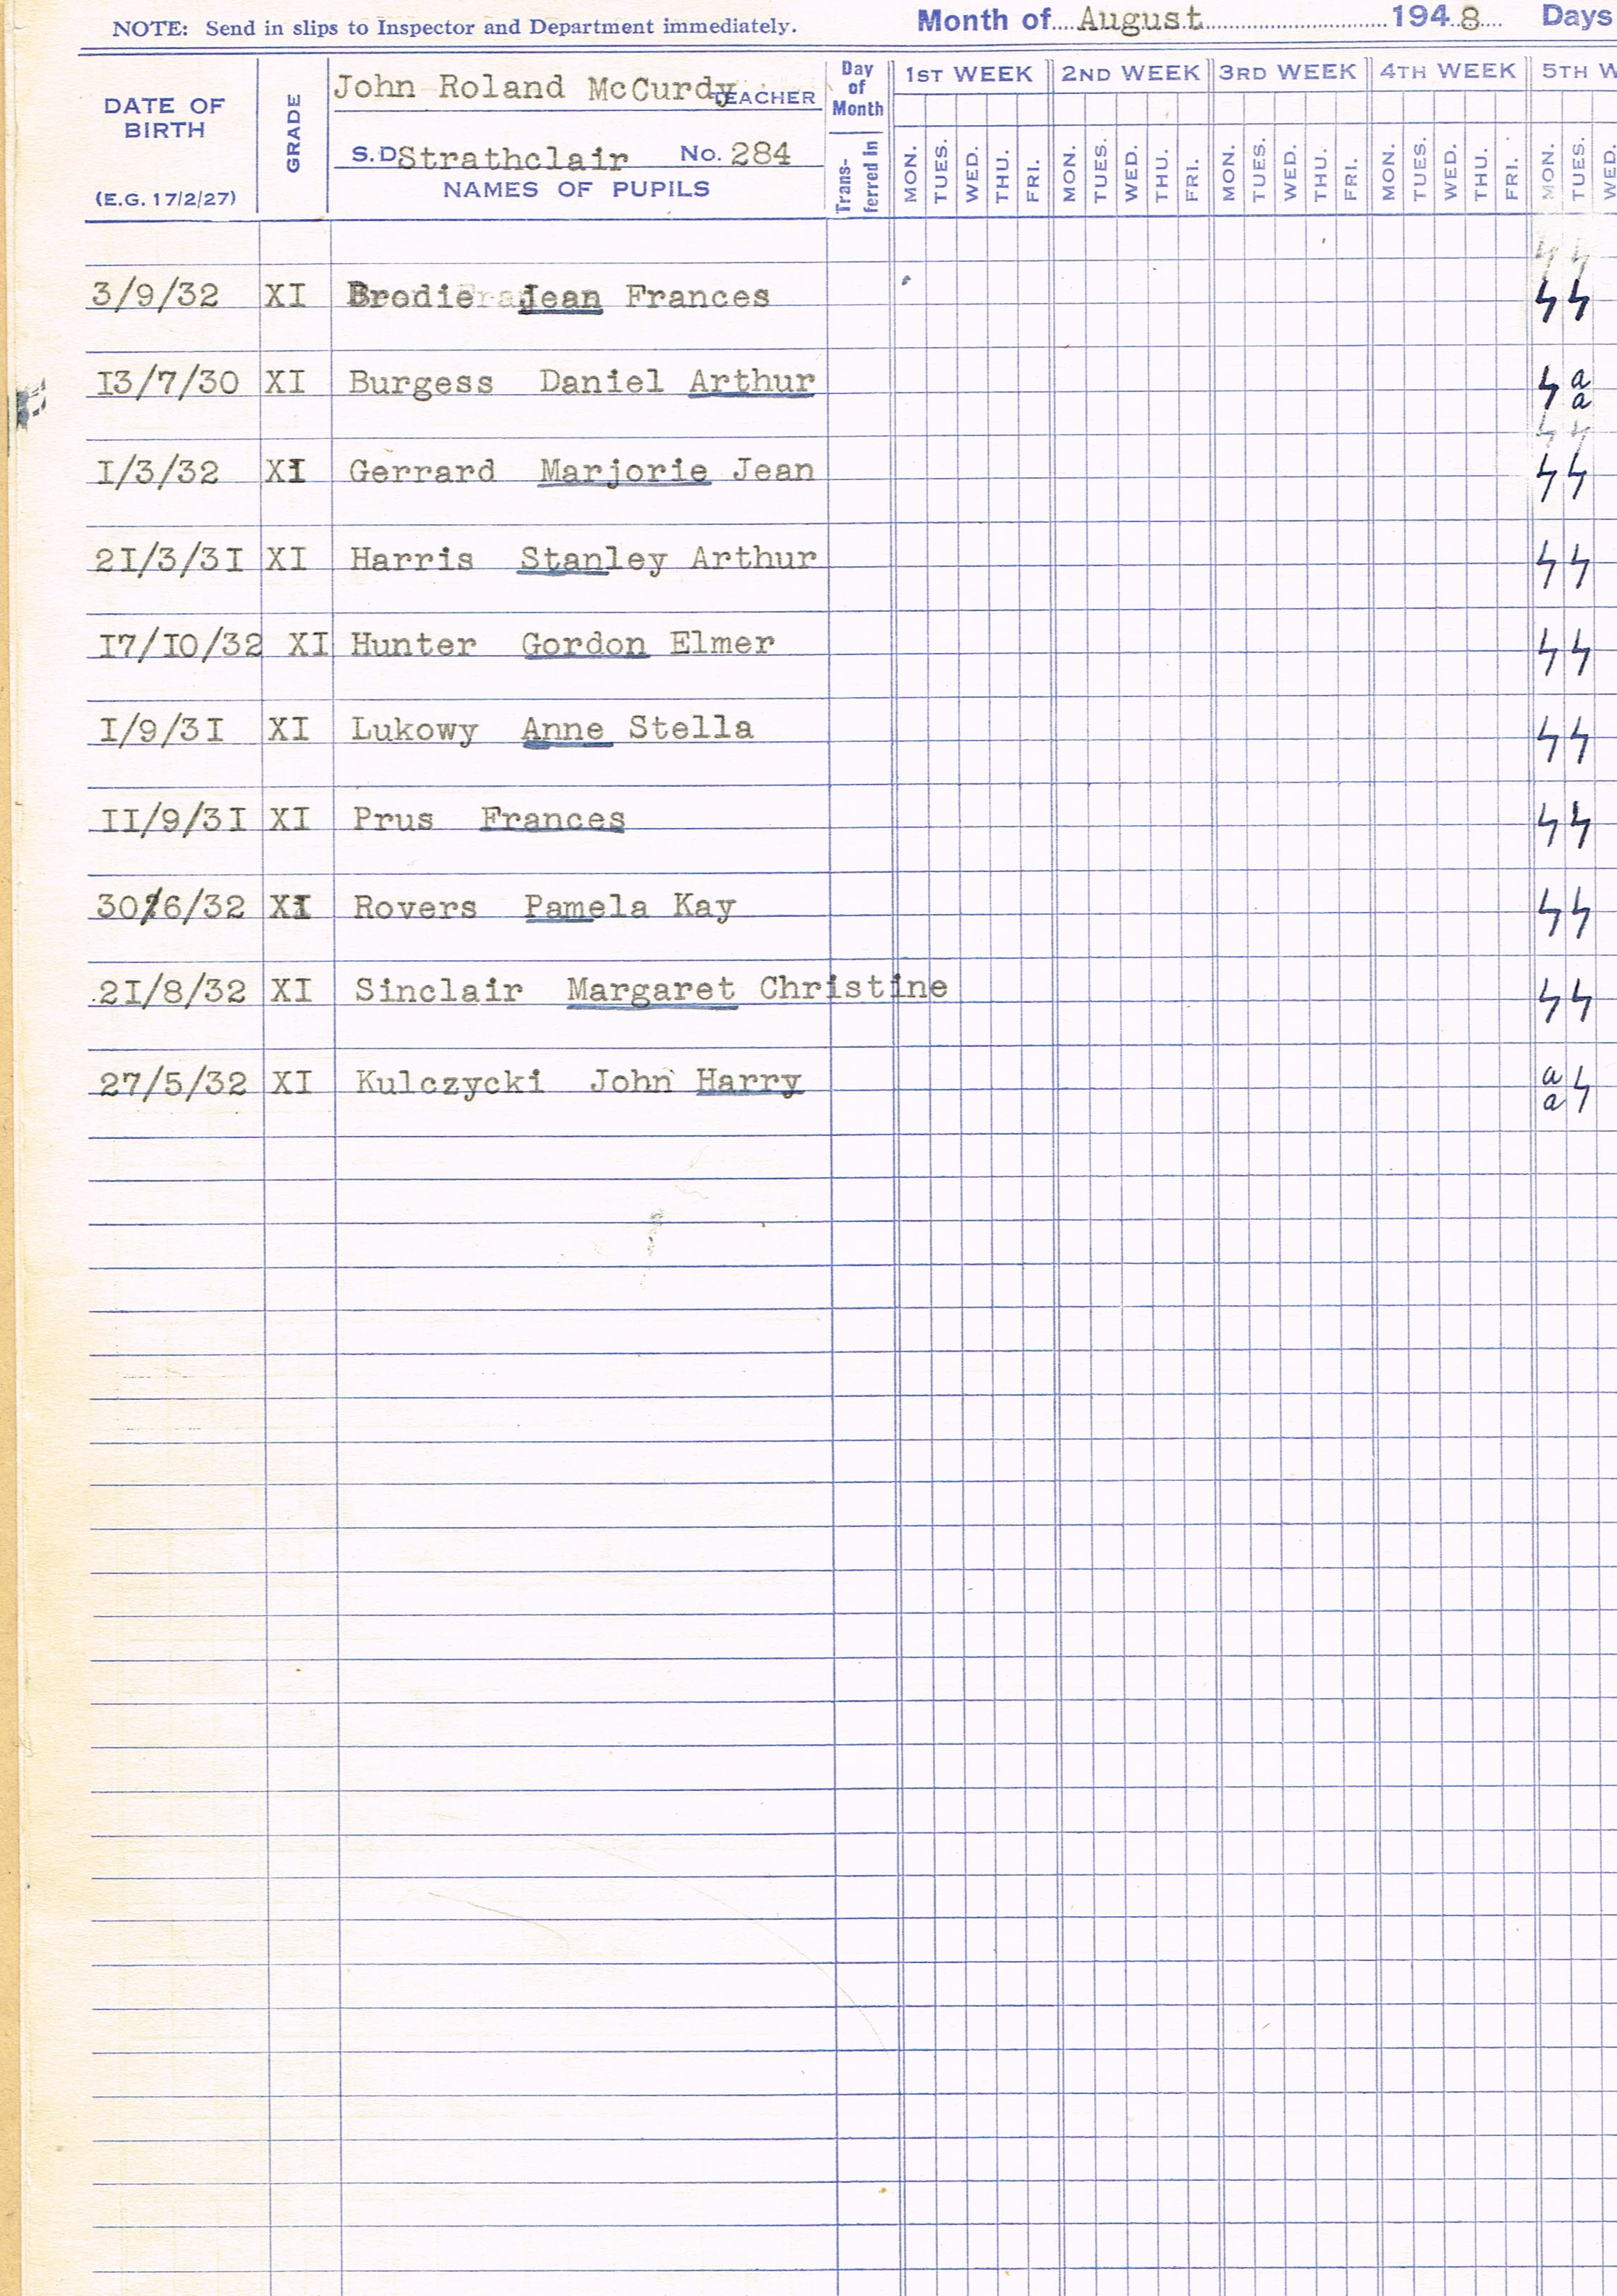 NOTE: Send in slips to Inspector and Department immediately. Month of August 1948 Days
DATE OF BIRTH (E.G. 17/2/27)
GRADE
John Roland McCurdy TEACHER
S.D Strathclair No. 284
NAMES OF PUPILS
Day of Month
Trans-ferred in
1ST WEEK 2ND WEEK 3RD WEEK 4TH WEEK 5TH W
MON. TUES. WED. THU. FRI. MON. TUES. WED. THU. FRI. MON. TUES. WED. THU. FRI. MON. TUES. WED. THU. FRI. MON. TUES. WED.
3/9/32 XI Brodie Jean Frances
I3/7/30 XI Burgess Daniel Arthur a a
I/3/32 XI Gerrard Marjorie Jean
2I/3/3I XI Harris Stanley Arthur
I7/I0/32 XI Hunter Gordon Elmer
I/9/3I XI Lukowy Anne Stella
II/9/3I XI Prus Frances
30/6/32 XI Rovers Pamela Kay
2I/8/32 XI Sinclair Margaret Christine
27/5/32 XI Kulczycki John Harry a a